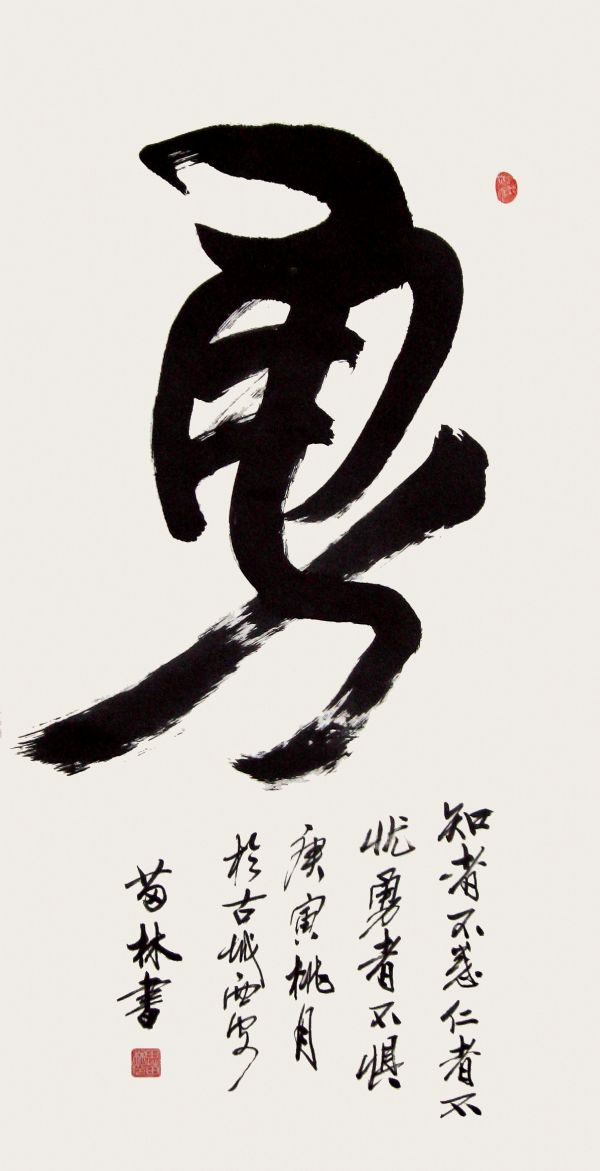 勇
知者不惑仁者不
忧勇者不惧
庚寅桃月
于古城西安
苗林書